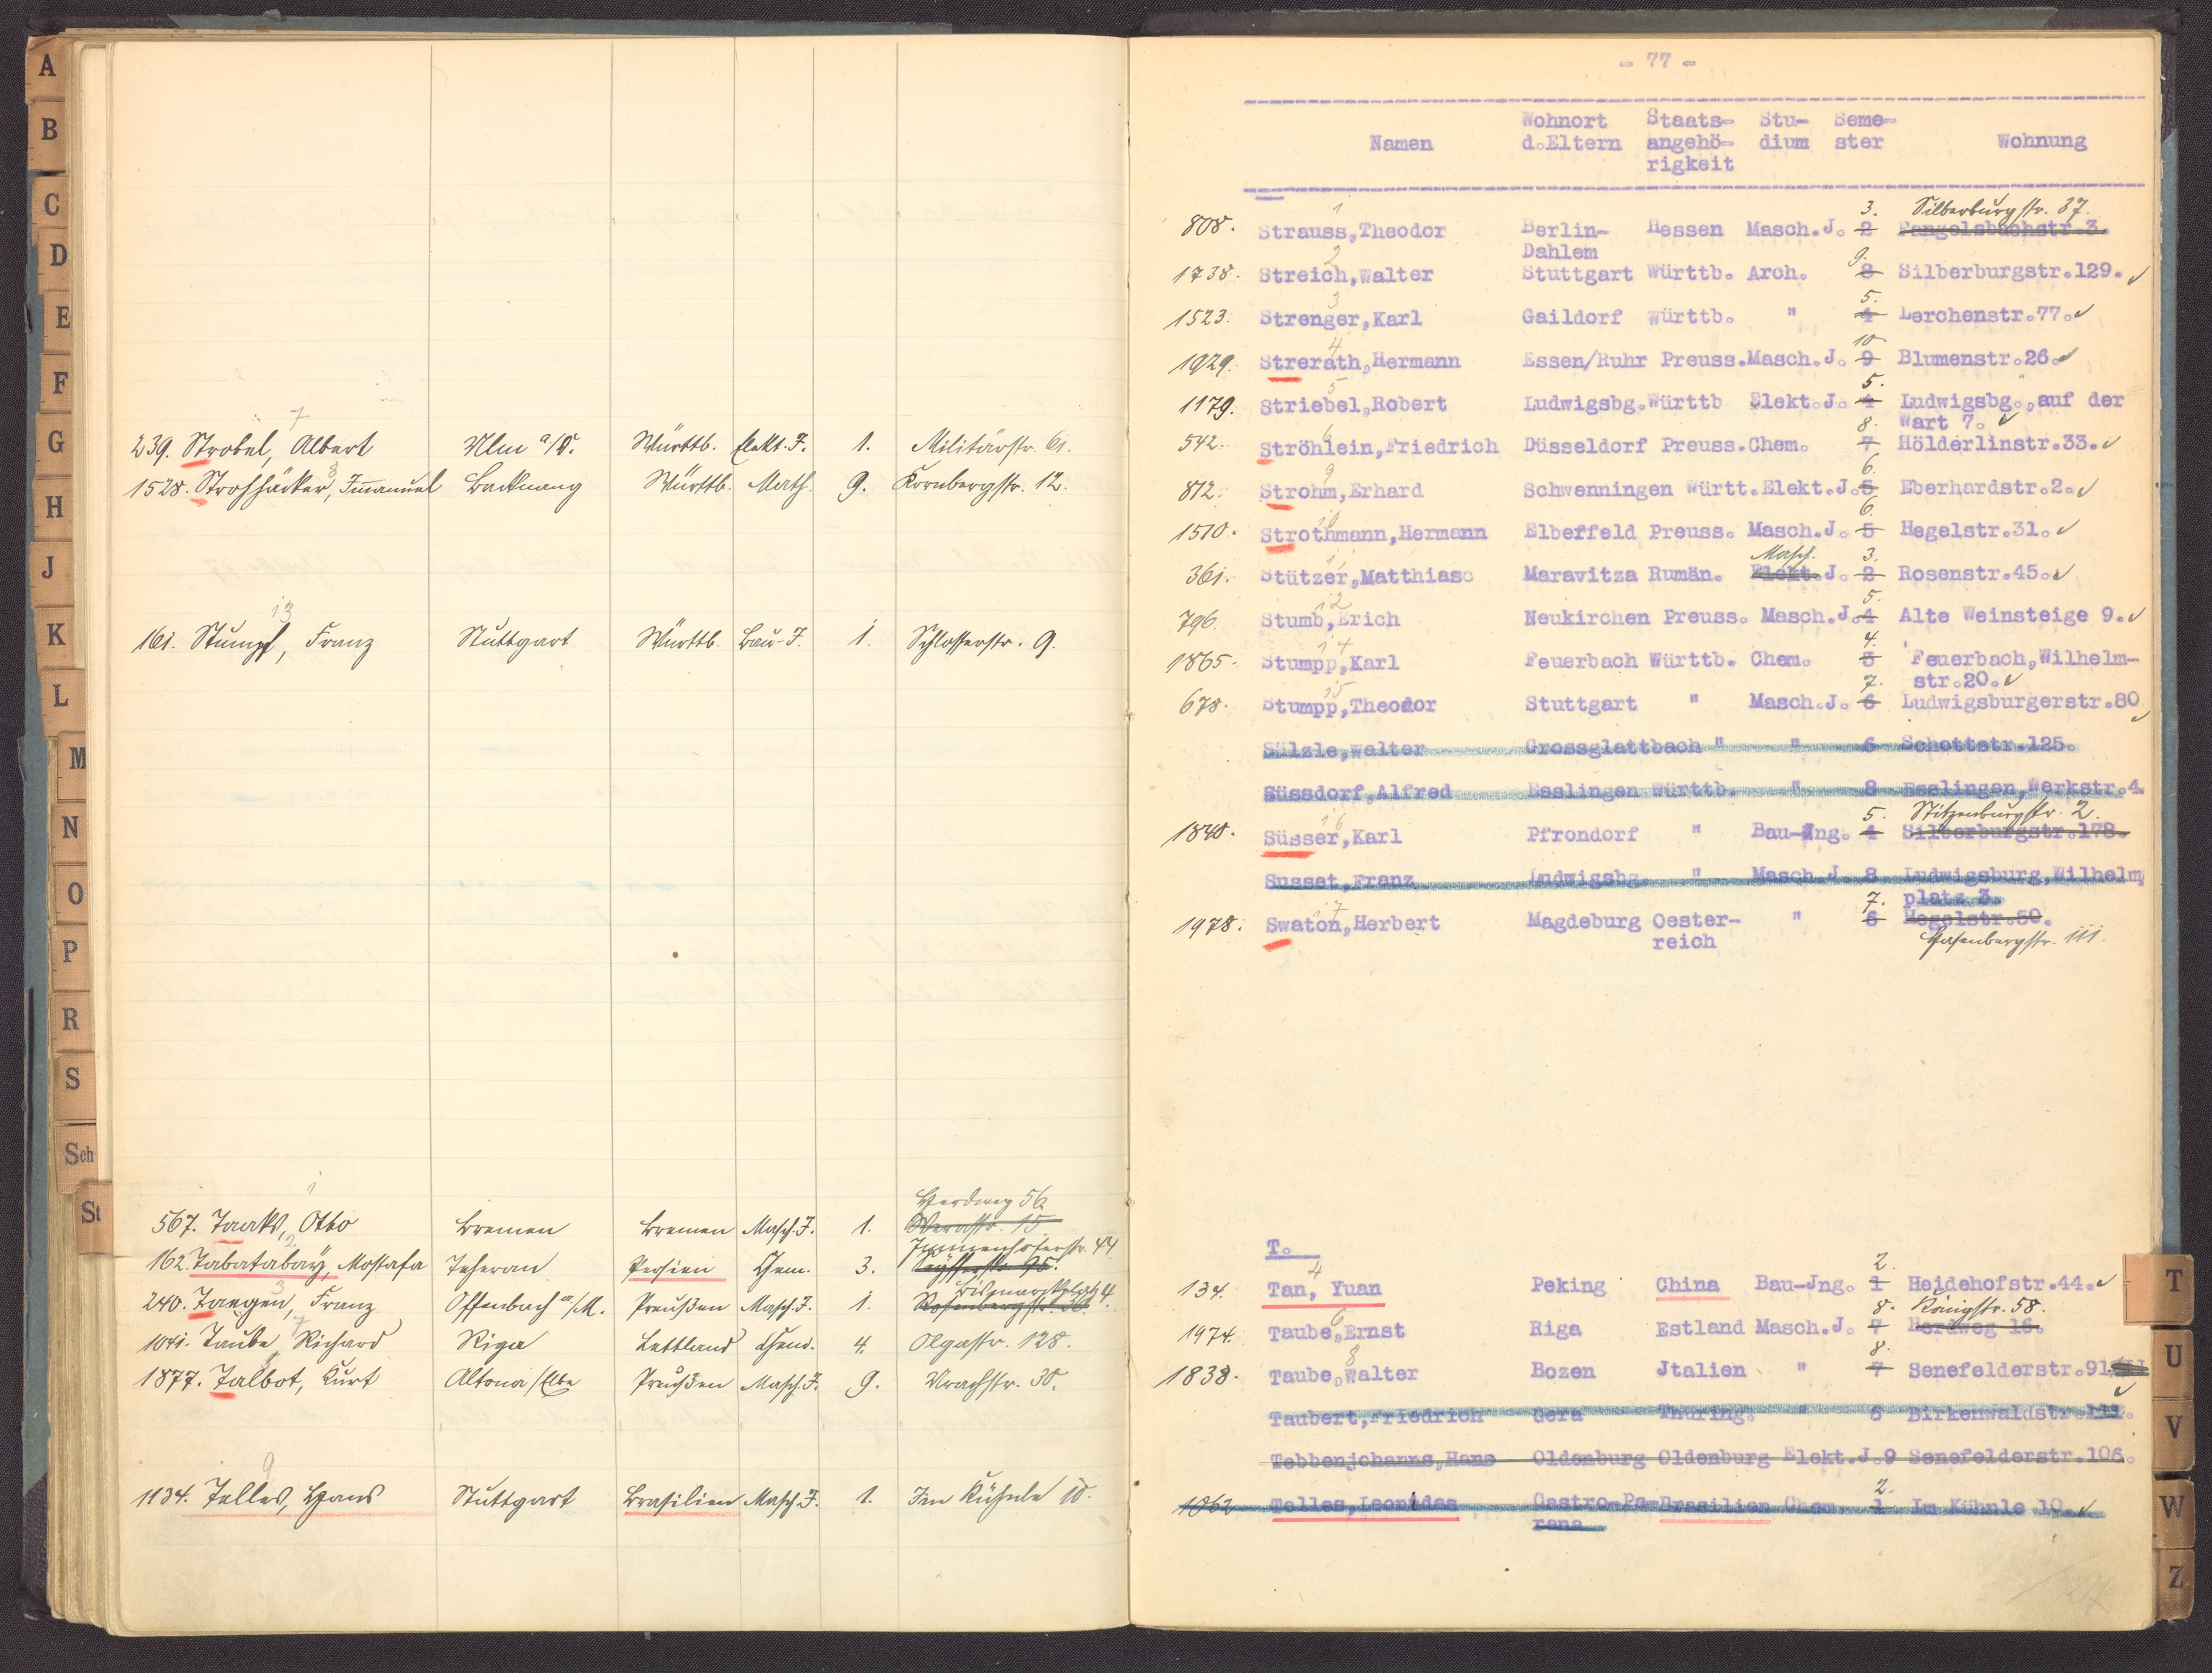 A
B
C
D
E
F
G
H
J
K
L
M
N
O
P
R
S
Sch
St
7
239. Strobel, Albert Ulm a/D. Württb. Elekt. J. 1. Militärstr. 61.
8
1528. Strohhäcker, Immanuel Backnang Württb. Math. 9. Kornbergstr. 12.
13
161. Stumpf, Franz Stuttgart Württb. Bau-J. 1. Schlosserstr. 9.
1
Herdweg 56
567. Taaks, Otto Bremen Bremen Masch. J. 1. Werastr. 15
2
Immenhoferstr. 44
162. Tabatabay, Mostafa Teheran Persien Chem. 3.
3
Bismarckplatz 4.
240. Taegen, Franz Offenbach a/M. Preußen Masch. J. 1. Rosenbergstr. 36.
7
1041. Taube, Richard Riga Lettland Chem. 4. Olgastr. 128.
5
1877. Talbot, Kurt Altona/Elbe Preußen Masch. J. 9. Urachstr. 30.
9
1134. Telles, Hans Stuttgart Brasilien Masch. J. 1. Im Kühnle 10.
- 77 -
Wohnort Staats- Stu- Seme-
Namen d.Eltern angehö- dium ster Wohnung
rigkeit
1 3. Silberburgstr. 37.
808. Strauss,Theodor Berlin- Hessen Masch.J. 2 Fangelsbachstr.3.
Dahlem
2 9.
1738. Streich,Walter Stuttgart Württb. Arch. 8 Silberburgstr.129. ✓
3 5.
1523. Strenger,Karl Gaildorf Württb. " 4 Lerchenstr.77. ✓
4 10
1929. Strerath,Hermann Essen/Ruhr Preuss.Masch.J. 9 Blumenstr.26. ✓
5 5.
1179. Striebel,Robert Ludwigsbg.Württb Elekt.J. 4 Ludwigsbg.,auf der
Wart 7. ✓
6 8.
542. Ströhlein,Friedrich Düsseldorf Preuss.Chem. 7 Hölderlinstr.33. ✓
9 6.
812. Strohm,Erhard Schwenningen Württ.Elekt.J.5 Eberhardstr.2. ✓
10 6.
1510. Strothmann,Hermann Elbeffeld Preuss. Masch.J. 5 Hegelstr.31. ✓
11 Masch. 3.
361. Stützer,Matthias Maravitza Rumän. Elekt.J. 2 Rosenstr.45. ✓
12 5.
796. Stumb,Erich Neukirchen Preuss. Masch.J.4 Alte Weinsteige 9. ✓
14 4.
1865. Stumpp,Karl Feuerbach Württb. Chem. 3 Feuerbach,Wilhelm-
str.20. ✓
15 7.
678. Stumpp,Theodor Stuttgart " Masch.J. 6 Ludwigsburgerstr.80 ✓
Sülzle,Walter Grossglattbach " " 6 Schottstr.125.
Süssdorf,Alfred Esslingen Württb. " 8 Esslingen,Werkstr.4.
16 5. Stitzenburgstr. 2.
1840. Süsser,Karl Pfrondorf " Bau-Jng. 4 Silberburgstr.178.
Susset,Franz Ludwigsbg. " Masch.J. 8 Ludwigsburg,Wilhelm
platz 3.
17 7.
1978. Swaton,Herbert Magdeburg Oester- " 6 Hegelstr.50.
reich Hasenbergstr. 111.
T.
4 2.
134. Tan, Yuan Peking China Bau-Jng. 1 Heidehofstr.44. ✓
6 8. Königstr. 58.
1974. Taube,Ernst Riga Estland Masch.J. 7 Herdweg 16.
8 8.
1838. Taube,Walter Bozen Jtalien " 7 Senefelderstr.91 ✓
Taubert,Friedrich Gera Thüring. " 6 Birkenwaldstr.111.
Tebbenjohanns,Hans Oldenburg Oldenburg Elekt.J.9 Senefelderstr.106.
2.
1062 Telles,Leonidas Castro-Pa-Brasilien Chem. 1 Im Kühnle 10. ✓
rana
T
U
V
W
Z